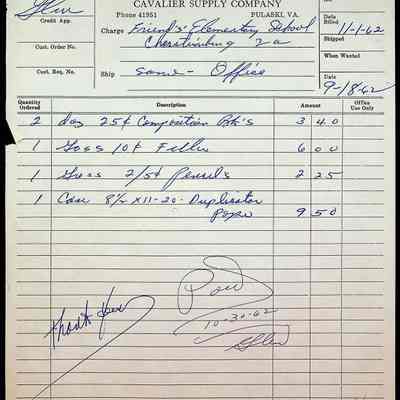 CAVALIER SUPPLY COMPANY
Phone 41951 PULASKI, VA.
Glen
Credit App.
Charge Friend's Elementary School
Christianburg Va
Date Billed 11-1-62
Cust. Order No.
Shipped
When Wanted
Cust. Req. No.
Ship same - Office
Date 9-18-62
Quantity Ordered Description Amount Office Use Only
2 doz 25¢ Composition Bk's 3 40
1 Gross 10¢ Filler 6 00
1 Gross 2/5¢ Pencils 2 25
1 Case 8½ x 11-20- Duplicator
Paper 9 50
Thank you
Paid
10-30-62
Glen